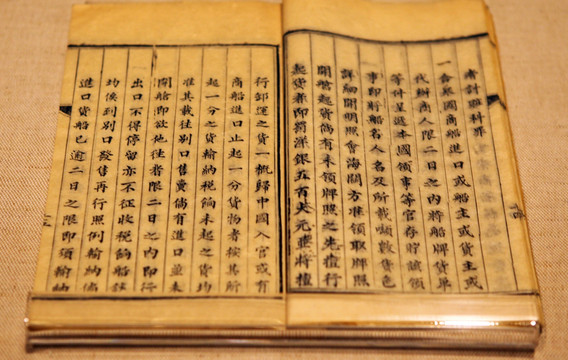 者計雖科罪
一合眾國商船進口或船主或貨主或
代辦商人限二日之內將船牌貨單
等件呈遞本國領事等官存貯該領
事即將船名人名及所載噸數貨色
詳細開明照會海關方准領取牌照
開艙起貨倘有未領牌照之先擅行
起貨者即罰洋銀五百大元並將擅
行卸運之貨一概歸中國入官或有
商船進口止起一分貨物者按其所
起一分之貨輸納稅餉未起之貨均
准其載往別口售賣倘有進口並未
開艙即欲他往者限二日之內即行
出口不得停留亦不征收稅餉船鈔
均俟到別口發售再行照例輸納倘
進口貨船已逾二日之限即須輸納